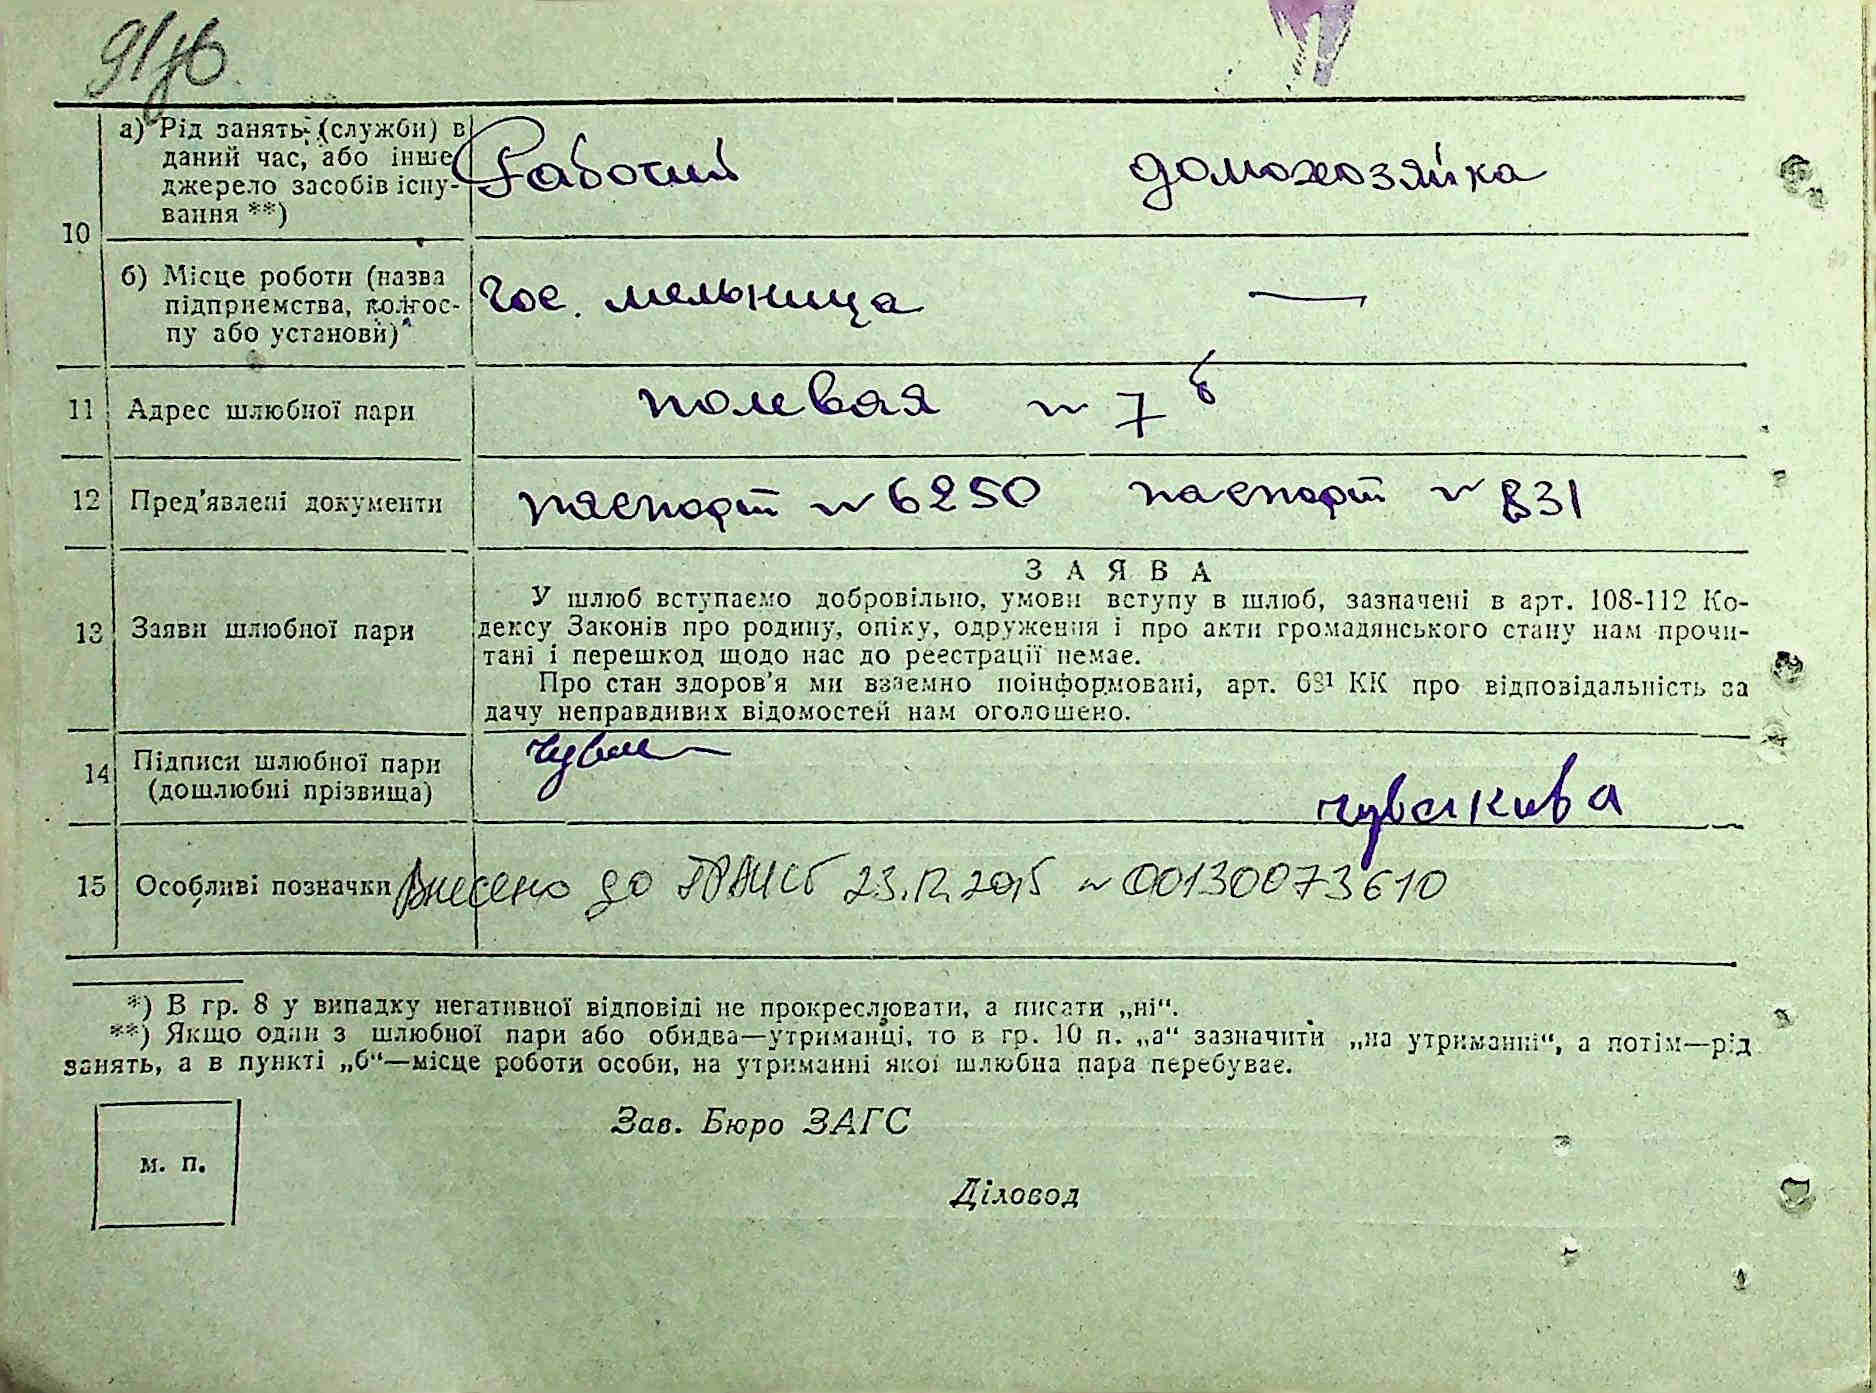 91зв
а) Рід занять (служби) в
даний час, або інше
джерело засобів існу-
вання **)
Рабочий домохозяйка
10
б) Місце роботи (назва
підприємства, колгос-
пу або установи)
Гос. мельница —
11 Адрес шлюбної пари полевая № 7 б
12 Пред'явлені документи паспорт № 6250 паспорт № 831
ЗАЯВА
У шлюб вступаємо добровільно, умови вступу в шлюб, зазначені в арт. 108-112 Ко-
13 Заяви шлюбної пари дексу Законів про родину, опіку, одруження і про акти громадянського стану нам прочи-
тані і перешкод щодо нас до реєстрації немає.
Про стан здоров'я ми взаємно поінформовані, арт. 68¹ КК про відповідальність за
дачу неправдивих відомостей нам оголошено.
14 Підписи шлюбної пари
(дошлюбні прізвища)
15 Особливі позначки Внесено до ДРАЦСГ 23.12.2015 № 00130073610
*) В гр. 8 у випадку негативної відповіді не прокреслювати, а писати „ні“.
**) Якщо один з шлюбної пари або обидва—утриманці, то в гр. 10 п. „а“ зазначити „на утриманні“, а потім—рід
занять, а в пункті „б“—місце роботи особи, на утриманні якої шлюбна пара перебуває.
Зав. Бюро ЗАГС
м. п.
Діловод